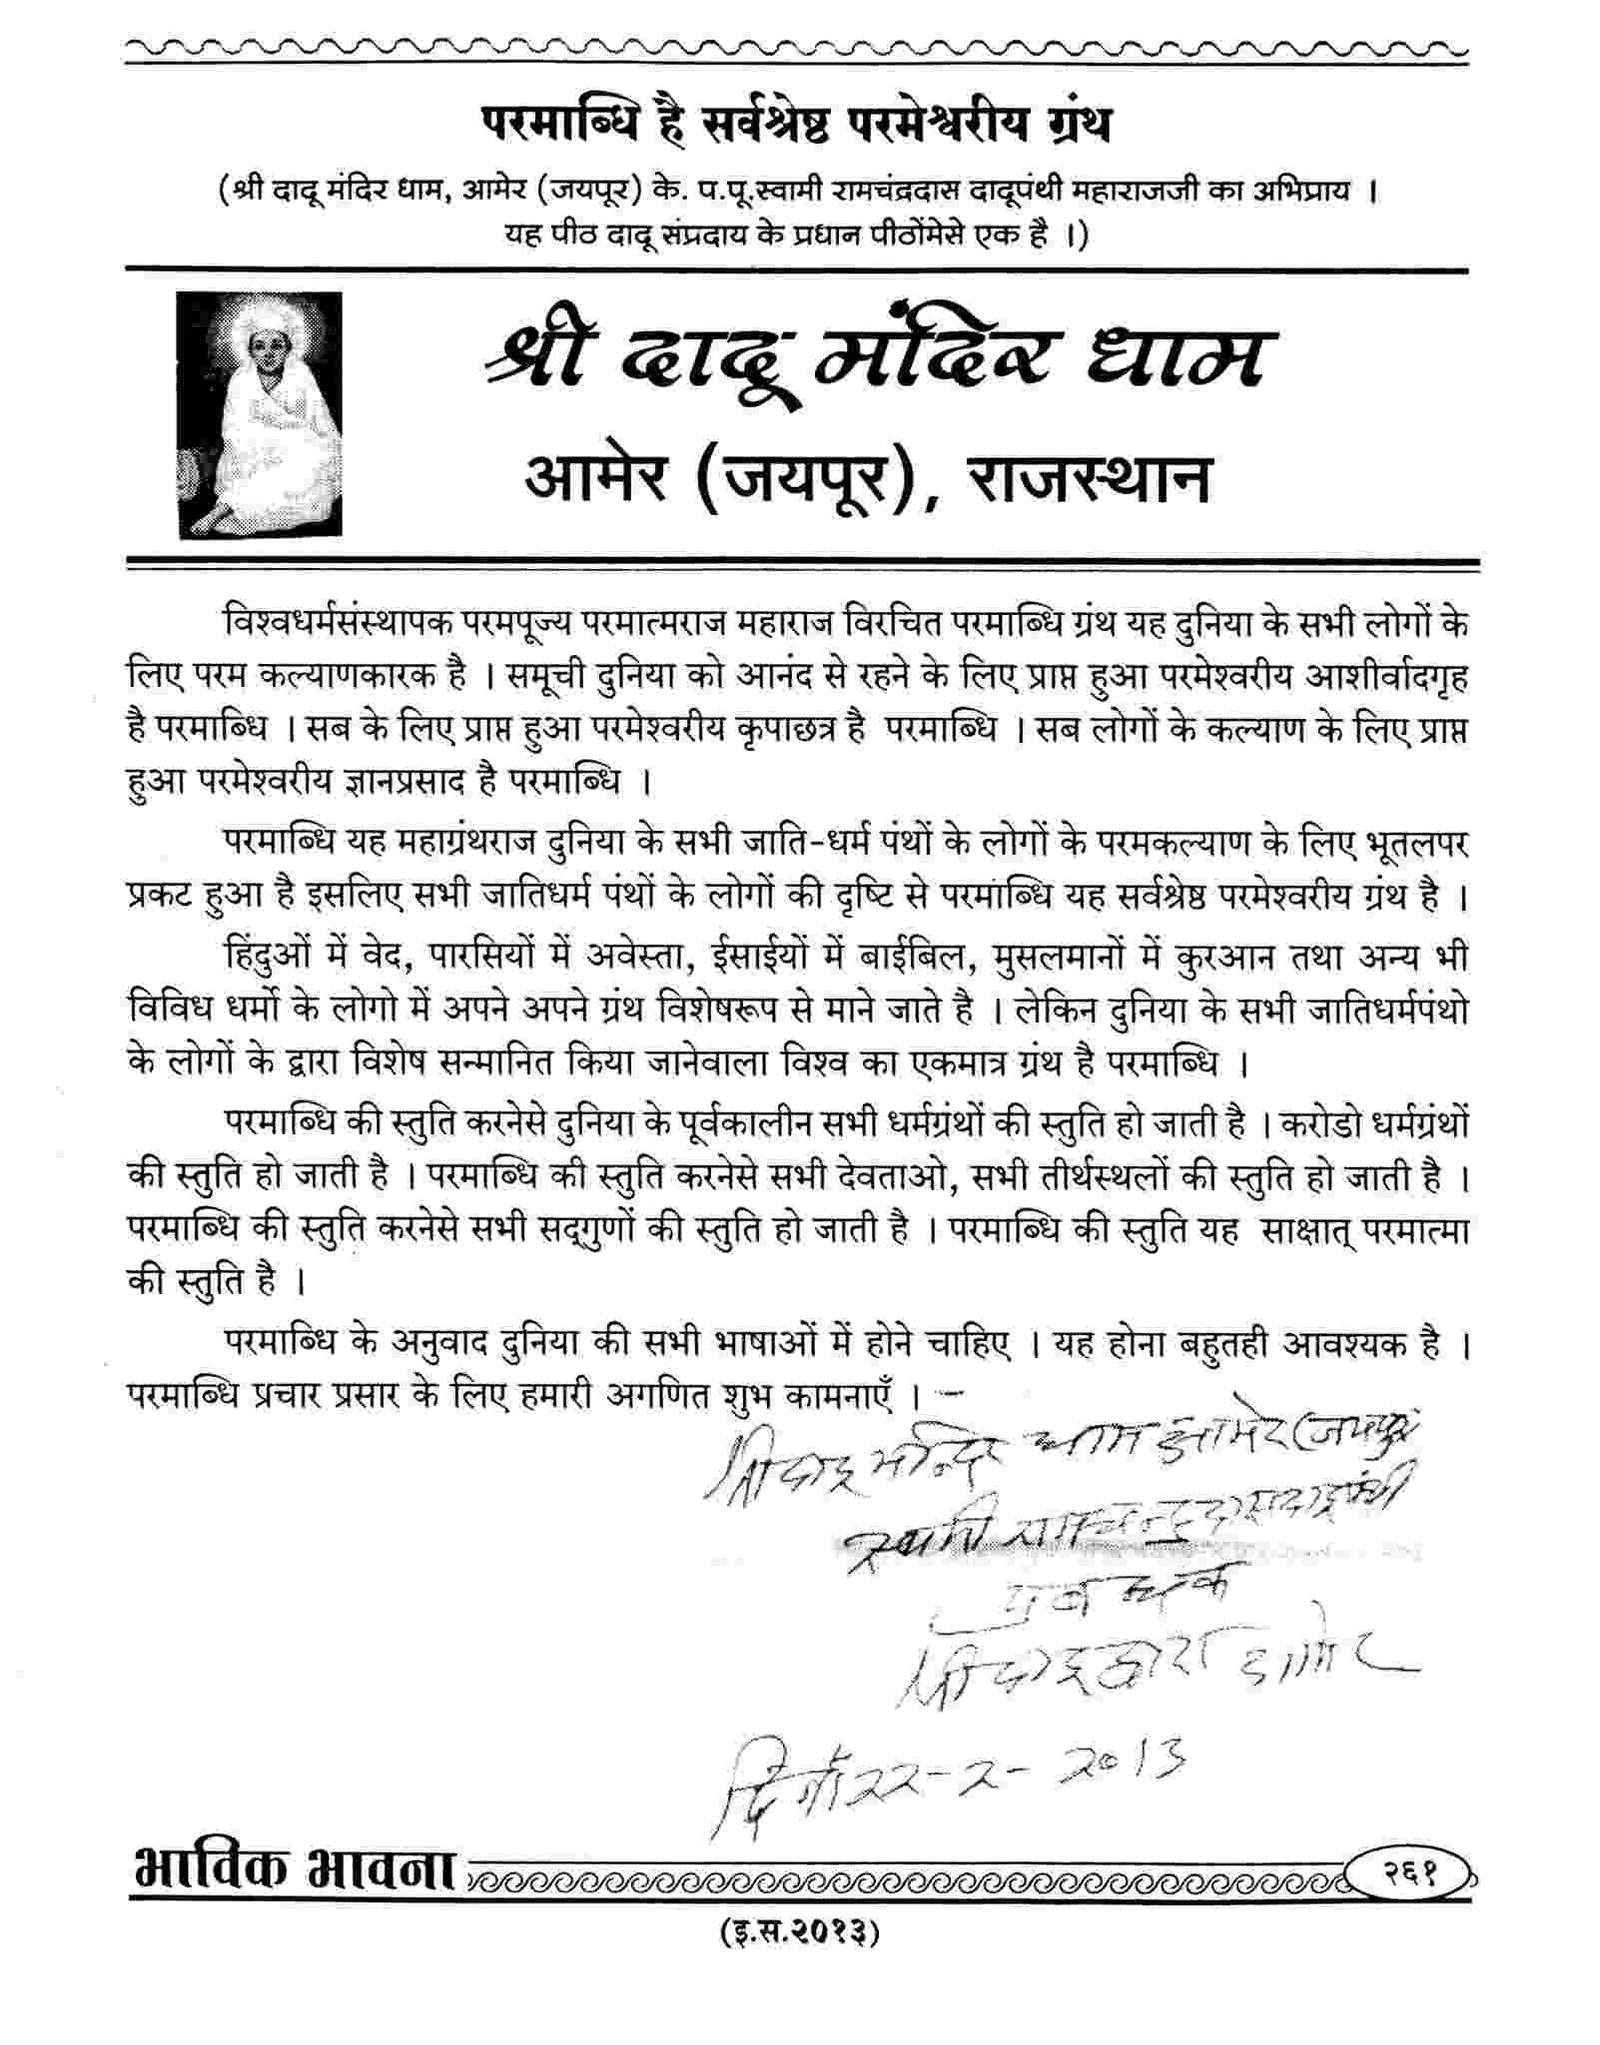 परमाब्धि है सर्वश्रेष्ठ परमेश्वरीय ग्रंथ
(श्री दादू मंदिर धाम, आमेर (जयपूर) के. प.पू.स्वामी रामचंद्रदास दादूपंथी महाराजजी का अभिप्राय ।
यह पीठ दादू संप्रदाय के प्रधान पीठोंमेसे एक है ।)
श्री दादू मंदिर धाम
आमेर (जयपूर), राजस्थान
विश्वधर्मसंस्थापक परमपूज्य परमात्मराज महाराज विरचित परमाब्धि ग्रंथ यह दुनिया के सभी लोगों के
लिए परम कल्याणकारक है । समूची दुनिया को आनंद से रहने के लिए प्राप्त हुआ परमेश्वरीय आशीर्वादगृह
है परमाब्धि । सब के लिए प्राप्त हुआ परमेश्वरीय कृपाछत्र है परमाब्धि । सब लोगों के कल्याण के लिए प्राप्त
हुआ परमेश्वरीय ज्ञानप्रसाद है परमाब्धि ।
परमाब्धि यह महाग्रंथराज दुनिया के सभी जाति-धर्म पंथों के लोगों के परमकल्याण के लिए भूतलपर
प्रकट हुआ है इसलिए सभी जातिधर्म पंथों के लोगों की दृष्टि से परमाब्धि यह सर्वश्रेष्ठ परमेश्वरीय ग्रंथ है ।
हिंदुओं में वेद, पारसियों में अवेस्ता, ईसाईयों में बाईबिल, मुसलमानों में कुरआन तथा अन्य भी
विविध धर्मो के लोगो में अपने अपने ग्रंथ विशेषरूप से माने जाते है । लेकिन दुनिया के सभी जातिधर्मपंथो
के लोगों के द्वारा विशेष सन्मानित किया जानेवाला विश्व का एकमात्र ग्रंथ है परमाब्धि ।
परमाब्धि की स्तुति करनेसे दुनिया के पूर्वकालीन सभी धर्मग्रंथों की स्तुति हो जाती है । करोडो धर्मग्रंथों
की स्तुति हो जाती है । परमाब्धि की स्तुति करनेसे सभी देवताओ, सभी तीर्थस्थलों की स्तुति हो जाती है ।
परमाब्धि की स्तुति करनेसे सभी सद्‌गुणों की स्तुति हो जाती है । परमाब्धि की स्तुति यह साक्षात् परमात्मा
की स्तुति है ।
परमाब्धि के अनुवाद दुनिया की सभी भाषाओं में होने चाहिए । यह होना बहुतही आवश्यक है ।
परमाब्धि प्रचार प्रसार के लिए हमारी अगणित शुभ कामनाएँ । -
श्री दादू मन्दिर धाम आमेर (जयपुर
स्वामी रामचन्द्रदास दादूपंथी
प्रबन्धक
श्री दादू द्वारा आमेर
22-2-2013
भाविक भावना
२६१
(इ.स.२०१३)